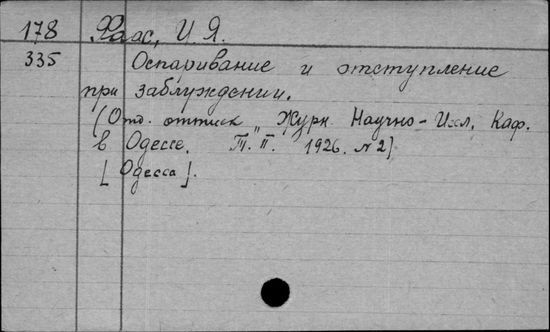 178 Фаас, И. Я.
335 Оспаривание и отступление
при заблуждении.
(Отд. оттиск „Журн. Научно-Иссл. Каф.
в Одессе. Т. II. 1926. №2)
[Одесса].